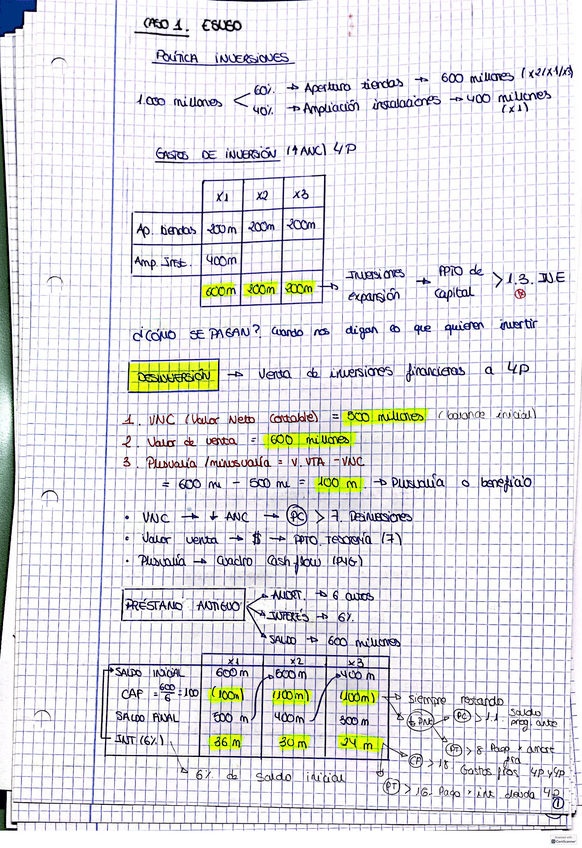 CASO 1. ESUSO
POLÍTICA INVERSIONES
1.000 millones
60% → Apertura tiendas → 600 millones (x2/x1/x3)
40% → Ampliación instalaciones → 400 millones
(x1)
GASTOS DE INVERSIÓN (↑ANC) 4P
x1 x2 x3
Ap. tiendas 200m 200m 200m
Amp. Inst. 400m
600m 200m 200m → INVERSIONES expansión → PPTO de capital > 1.3. INE
¿CÓMO SE PAGAN? Cuando nos digan es que quieren invertir
DESINVERSIÓN → Venta de inversiones financieras a 4P
1. VNC (Valor Neto Contable) = 500 millones (balance inicial)
2. Valor de venta = 600 millones
3. Plusvalía/minusvalía = V.VTA - VNC
= 600 m - 500 m = 100 m → Plusvalía o beneficio
• VNC → ↓ ANC → PC > 7. Desinversiones
• Valor venta → $ → PPTO. TESORERÍA (7)
• Plusvalía → Cuadro Cash flow (PyG)
PRÉSTAMO ANTIGUO
AMORT. → 6 años
INTERÉS → 6%
SALDO → 600 millones
x1 x2 x3
SALDO INICIAL 600m 500m 400m
CAP = 600/6 = 100 (100m) (100m) (100m) → siempre restando
SALDO FINAL 500m 400m 300m
INT (6%) 36m 30m 24m
6% de saldo inicial
PC > 1.1. saldo
PT > 8 Pago x
CP > 18 Gastos fros 4P y 4P
PT > 16. Pago x int deuda 4P
1
CamScanner